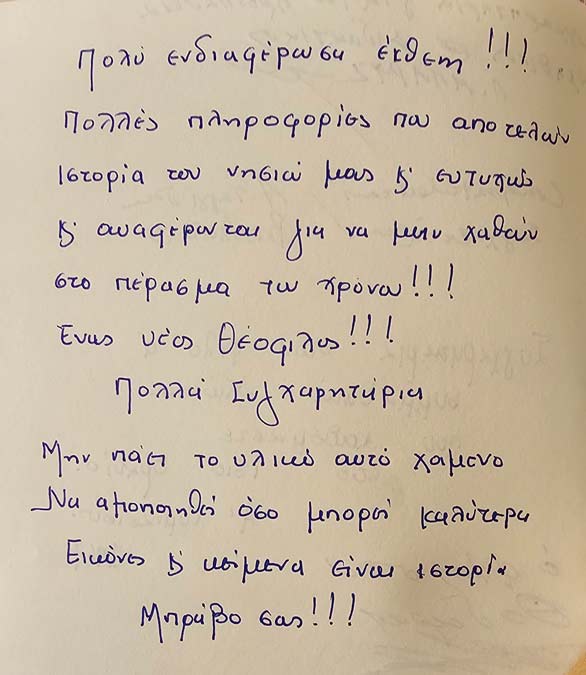 Πολύ ενδιαφέρωσα έκθεση!!!
Πολλές πληροφορίες που αποτελούν
Ιστορία του νησιού μας κ' ευτυχώς
κ' αναφέρονται για να μην χαθούν
στο πέρασμα του χρόνου!!!
Ένας νέος Θεόφιλος!!!
Πολλά Συγχαρητήρια
Μην πάει το υλικό αυτό χαμένο
Να αξιοποιηθεί όσο μπορεί καλύτερα
Εικόνες κ' κείμενα είναι ιστορία
Μπράβο σας!!!